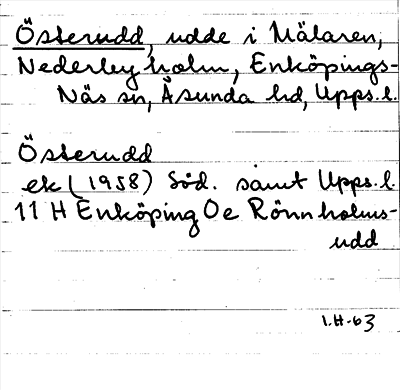 Österudd, udde i Mälaren,
Nederleyholm, Enköpings-
Näs sn, Åsunda hd, Upps.l.
Österudd
ek (1958) Söd. samt Upps.l.
11 H Enköping Oe Rönnholms-
udd
I.H-63